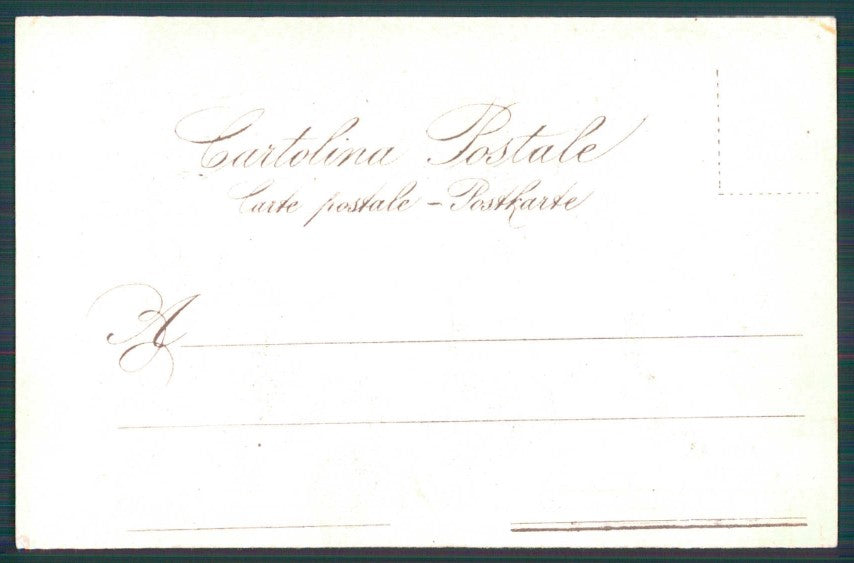 Cartolina Postale
Carte postale – Postkarte
A